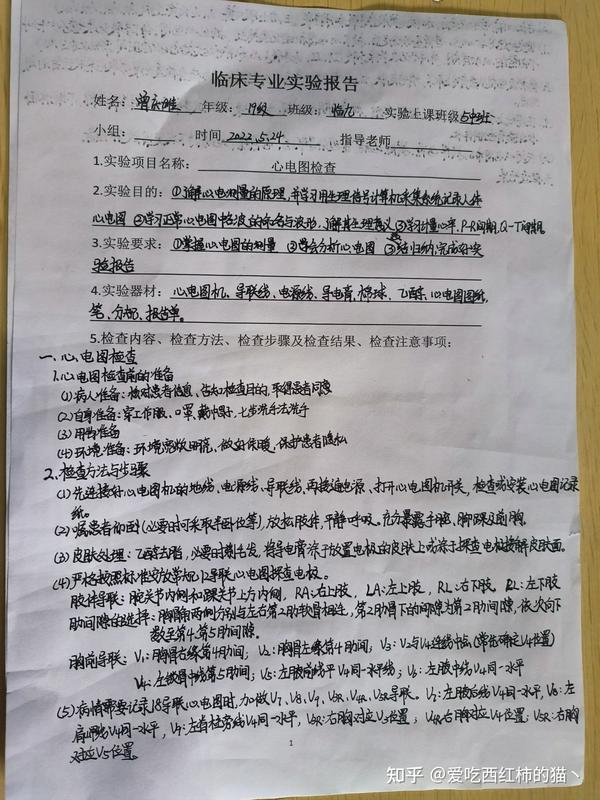 临床专业实验报告
姓名: 年级: 19级 班级: 临九 实验上课班级
小组: 时间 2022.5.24 指导老师
1.实验项目名称: 心电图检查
2.实验目的: ①了解心电测量的原理,并学习用生理信号计算机采集系统记录人体
心电图 ②学习正常心电图中各波的命名与波形,了解其生理意义 ③学习计量心率,P-R间期,Q-T间期。
3.实验要求: ①掌握心电图的测量 ②学会分析心电图 ③总结归纳,完成好实
验报告
4.实验器材: 心电图机、导联线、电源线、导电膏、棉球、乙醇、心电图图纸,
笔、分规、报告单。
5.检查内容、检查方法、检查步骤及检查结果、检查注意事项:
一.心电图检查
1.心电图检查前的准备
(1)病人准备:核对患者信息、告知检查目的,取得患者同意
(2)自身准备:穿工作服、口罩、戴帽子,七步洗手法洗手
(3)用物准备
(4)环境准备:环境宽敞明亮,做好保暖,保护患者隐私
2.检查方法与步骤
(1)先连接好心电图机的地线、电源线、导联线,再接通电源,打开心电图机开关,检查或安装心电图记录
纸。
(2)嘱患者仰卧(必要时可采取半卧位等),放松肢体,平静呼吸。充分暴露手腕,脚踝及前胸。
(3)皮肤处理:乙醇去脂,必要时剃毛发,将导电膏涂于放置电极的皮肤上或涂于探查电极接触皮肤面。
(4)严格按照标准安放常规12导联心电图探查电极。
肢体导联:腕关节内侧和踝关节上方内侧,RA:右上肢,LA:左上肢,RL:右下肢。LL:左下肢
肋间隙的选择:胸骨角两侧分别与左右第2肋软骨相连,第2肋骨下的间隙为第2肋间隙,依次向下
数至第4、第5肋间隙。
胸前导联:V₁:胸骨右缘第4肋间;V₂:胸骨左缘第4肋间;V₃:V₂与V₄连线中点(常在确定V₄位置)
V₄:左锁骨中线第5肋间;V₅:左腋前线平V₄同一水平线;V₆:左腋中线V₄同一水平
(5)病情需要记录18导联心电图时,加做V₇、V₈、V₉、V₃R、V₄R、V₅R导联。V₇:左腋后线V₄同一水平,V₈:左
肩胛线V₄同一水平,V₉:左脊柱旁线V₄同一水平,V₃R:右胸对应V₃位置;V₄R右胸对应V₄位置;V₅R:右胸
对应V₅位置。
1
知乎 @爱吃西红柿的猫丶